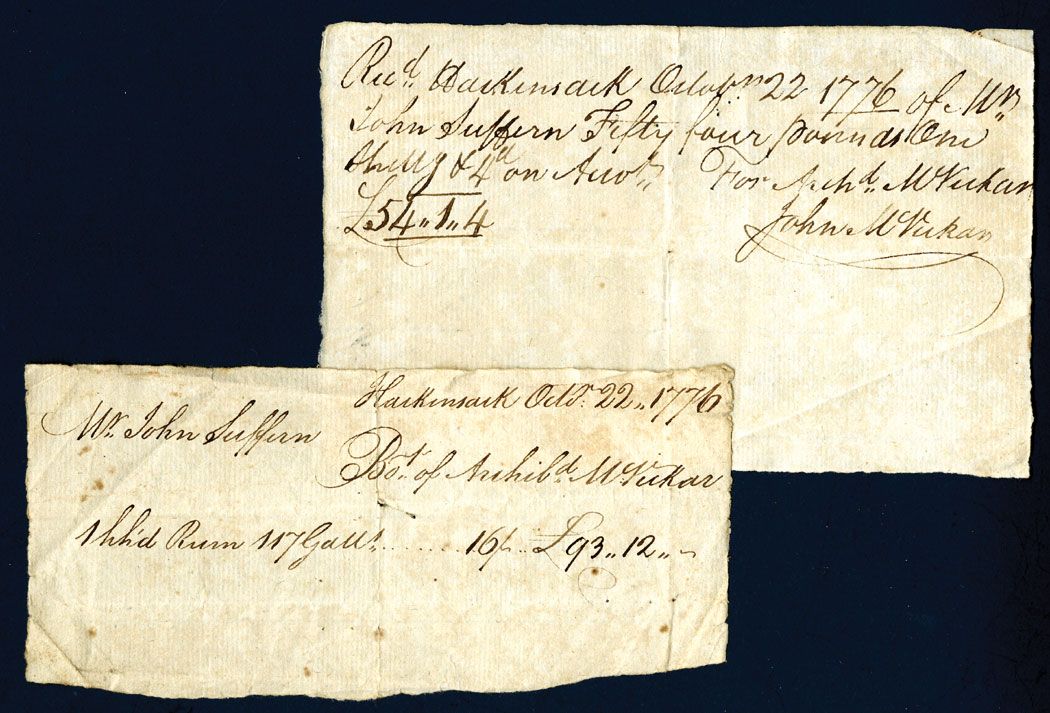 Recd. Hackensack Octobr. 22 1776 of Mr.
John Suffern Fifty four pounds One
Shillg & 4d on Accot.
For Archd. McVickar
£54,,1,,4
John McVickar
Hackensack Octor. 22,, 1776
Mr. John Suffern
Bot. of Archibd. McVickar
1 hh'd Rum 117 Galls. ........ 16/. .. £93,,12,, ~